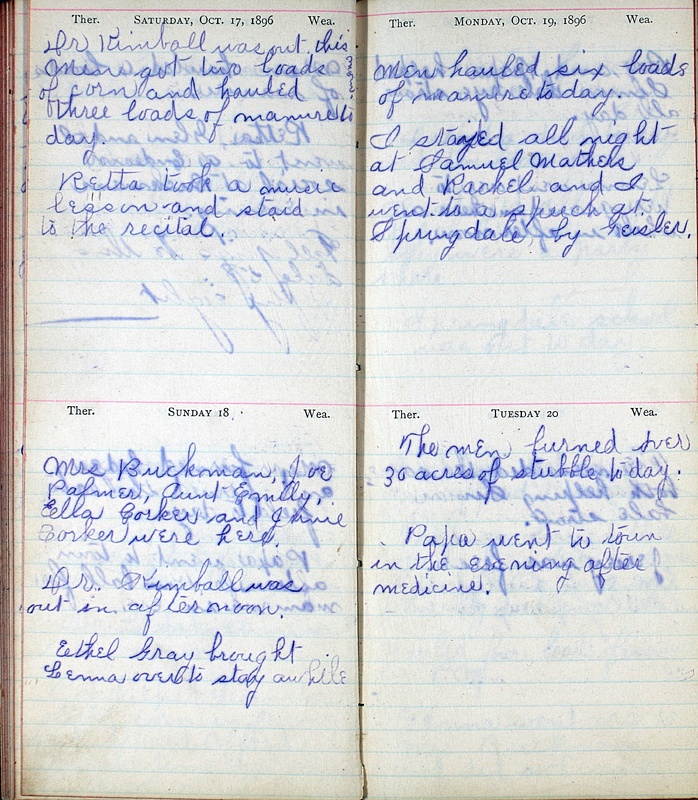 Ther. SATURDAY, OCT. 17, 1896 Wea.
Dr Kimball was out this
Men got two loads
of corn and hauled
three loads of manure to
day.
Retta took a music
lesson and staid
to the recital.
Ther. SUNDAY 18 Wea.
Mrs Buckman, Joe
Palmer, Aunt Emily,
Ella Corker and
Corker were here.
Dr. Kimball was
out in afternoon.
Ethel Gray brought
Lenna over to stay awhile
Ther. MONDAY, OCT. 19, 1896 Wea.
Men hauled six loads
of manure to day.
I stayed all night
at Samuel Mathers
and Rachel and I
went to a speech at
Springdale, by Geisler.
Ther. TUESDAY 20 Wea.
The men burned over
30 acres of stubble to day.
Papa went to town
in the evening after
medicine.